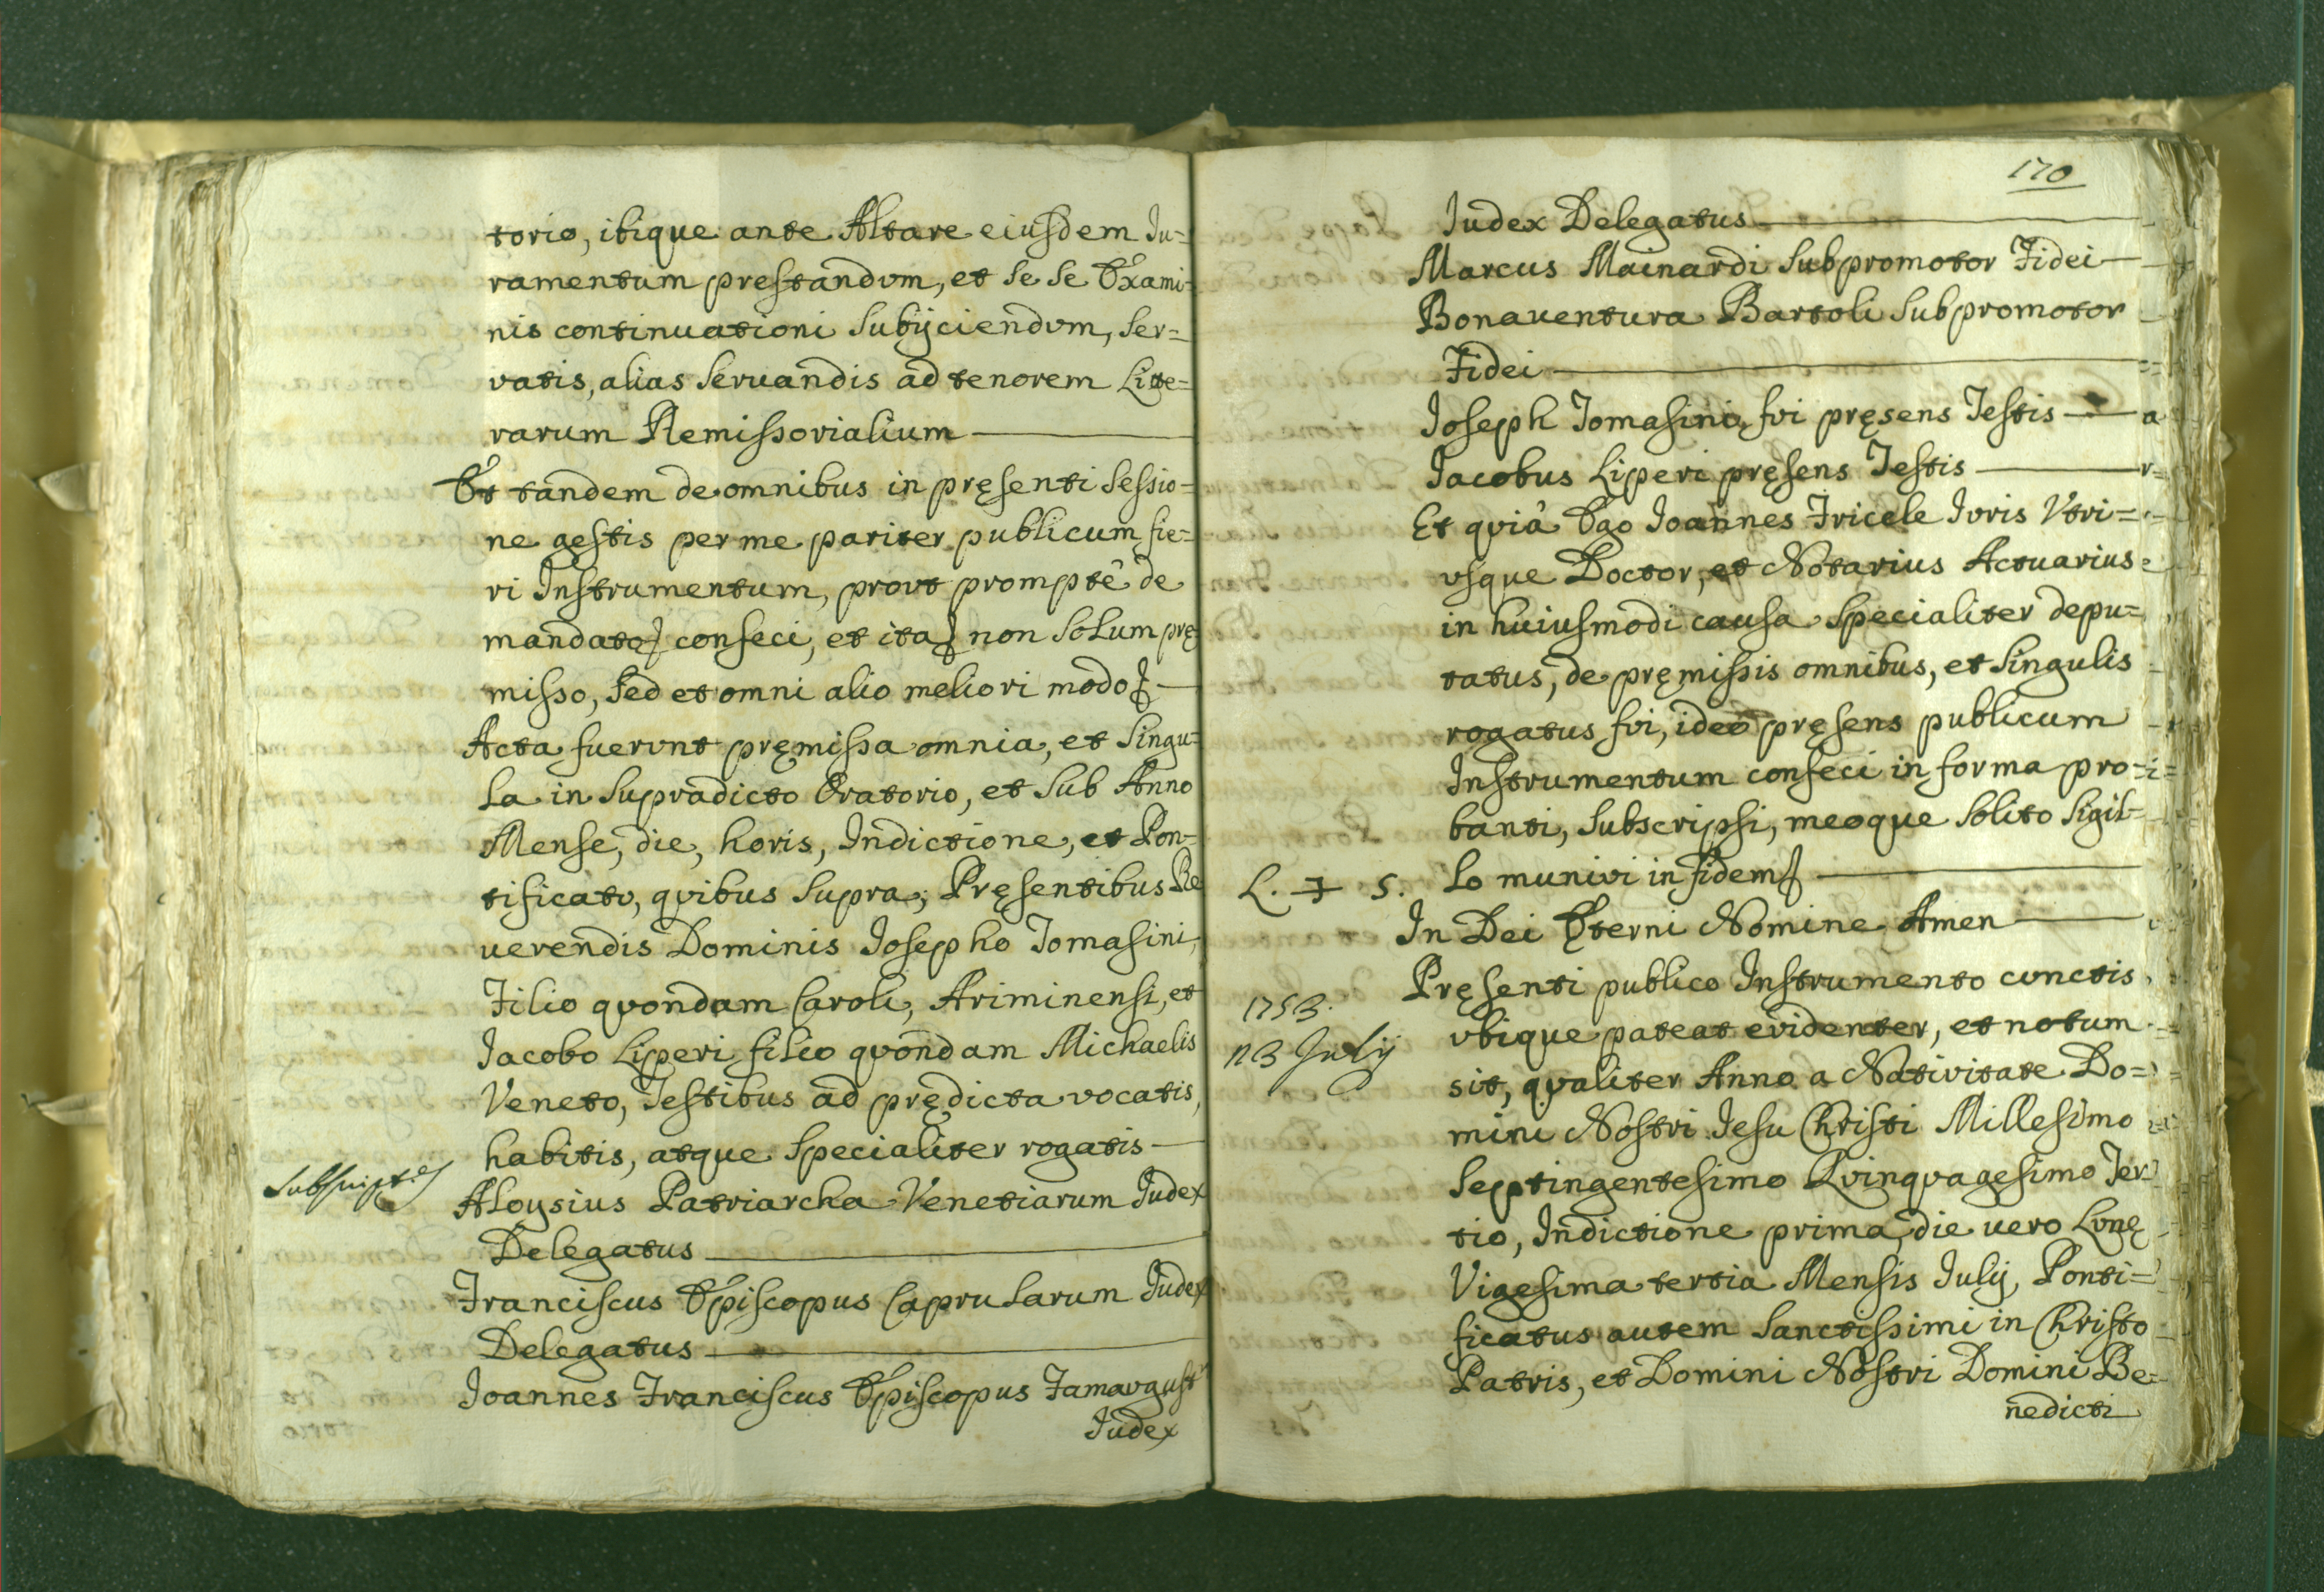 torio, ibique ante Altare eiusdem Iu=
ramentum prestandvm, et se se Exami=
nis continuationi subijciendvm, ser=
vatis, alias seruandis ad tenorem Litte=
rarum Remissorialium
Et tandem de omnibus in pręsenti sessio=
ne gestis per me pariter publicum fie=
ri Instrumentum, provt promptè de
mandato confeci, et ita non solum prę
misso, sed et omni alio meliori modo
Acta fuervnt pręmissa omnia, et singu=
la in supradicto Oratorio, et sub Anno
Mense, die, horis, Indictione, et Pon=
tificatv, qvibus supra; Pręsentibus Re
uerendis Dominis Josepho Tomasini,
Filio qvondam Caroli, Ariminensi, et
Jacobo Liperi filio qvondam Michaelis
Veneto, Testibus ad prędicta vocatis,
habitis, atque specialiter rogatis
Aloysius Patriarcha Venetiarum Judex
Delegatus
Franciscus Episcopus Caprularum Judex
Delegatus
Joannes Franciscus Episcopus Famavgust.
Judex
170
Iudex Delegatus
Marcus Mainardi Subpromotor Fidei
Bonauentura Bartoli Subpromotor
Fidei
Joseph Tomasini, fvi pręsens Testis
Jacobus Liperi pręsens Testis
Et qvià Ego Joannes Tricele Jvris Vtri=
vsque Doctor, et Notarius Actuarius
in huiusmodi causa specialiter depu=
tatus, de pręmissis omnibus, et singulis
rogatus fvi, ideo pręsens publicum
Instrumentum confeci in forma pro=
banti, subscripsi, meoque solito sigil=
L. + S. lo munivi in fidem
In Dei Ęterni Nomine Amen
1753.
23 Julij
Pręsenti publico Instrumento cvnctis
vbique pateat evidenter, et notum
sit, qvaliter Anno a Nativitate Do=
mini Nostri Jesu Christi Millesimo
Septingentesimo Qvinqvagesimo Ter=
tio, Indictione prima, die uero Lvnę
Vigesima tertia Mensis Julij, Ponti=
ficatus autem Sanctissimi in Christo
Patris, et Domini Nostri Domini Be=
nedicti